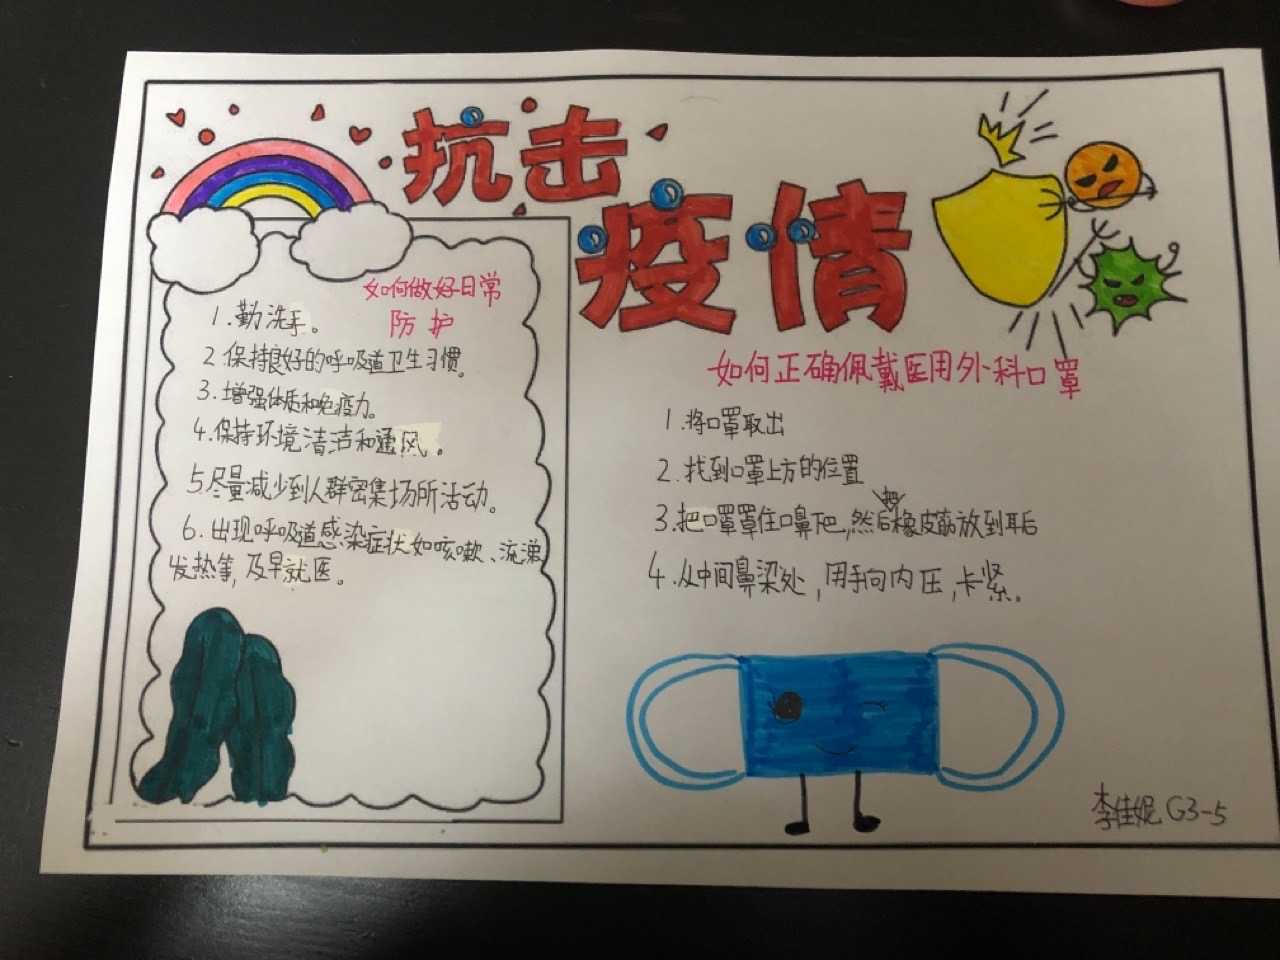 抗击
疫情
如何做好日常
防护
1.勤洗手。
2.保持良好的呼吸道卫生习惯。
3.增强体质和免疫力。
4.保持环境清洁和通风。
5尽量减少到人群密集场所活动。
6.出现呼吸道感染症状如咳嗽、流涕
发热等,及早就医。
如何正确佩戴医用外科口罩
1.将口罩取出
2.找到口罩上方的位置
3.把口罩罩住口鼻下巴,然后把橡皮筋放到耳后
4.从中间鼻梁处,用手向内压,卡紧。
李佳妮 G3-5